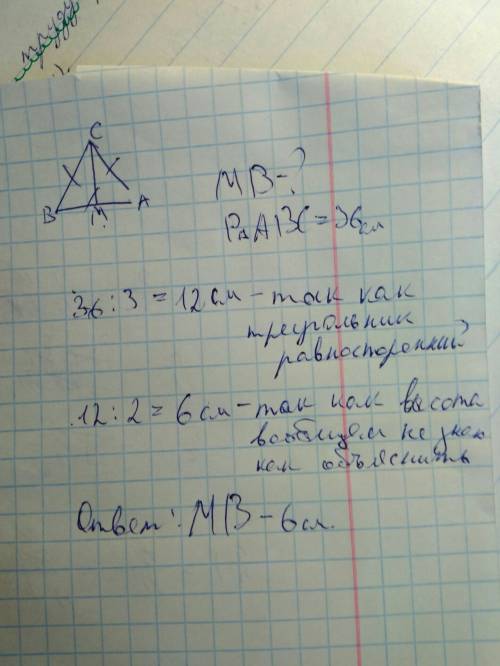 труду
C
B
M
A
MB-?
P△ABC=36см
36:3=12см-так как
треугольник
равносторонний
12:2=6см-так как высота
вообщем не знаю
как объяснить
Ответ: MB-6см.